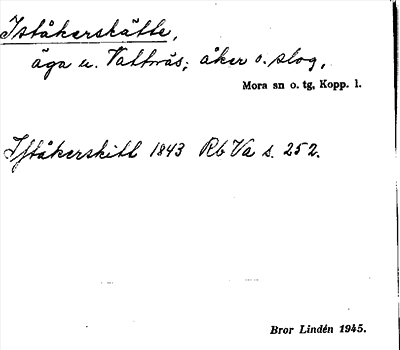 Iståkerskätte,
äga u. Vattnäs; åker o. slog,
Mora sn o. tg, Kopp. l.
Iståkerskitt 1843 Rb Va s. 252.
Bror Lindén 1945.